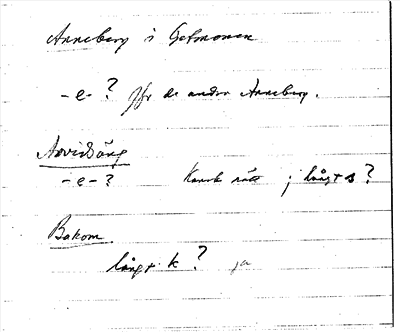 Anneberg i Getmonen
-e-? Jfr de andra Anneberg.
Arvidsäng
-e-? Kansk rätt ; långt s?
Bakom
långt k? ja